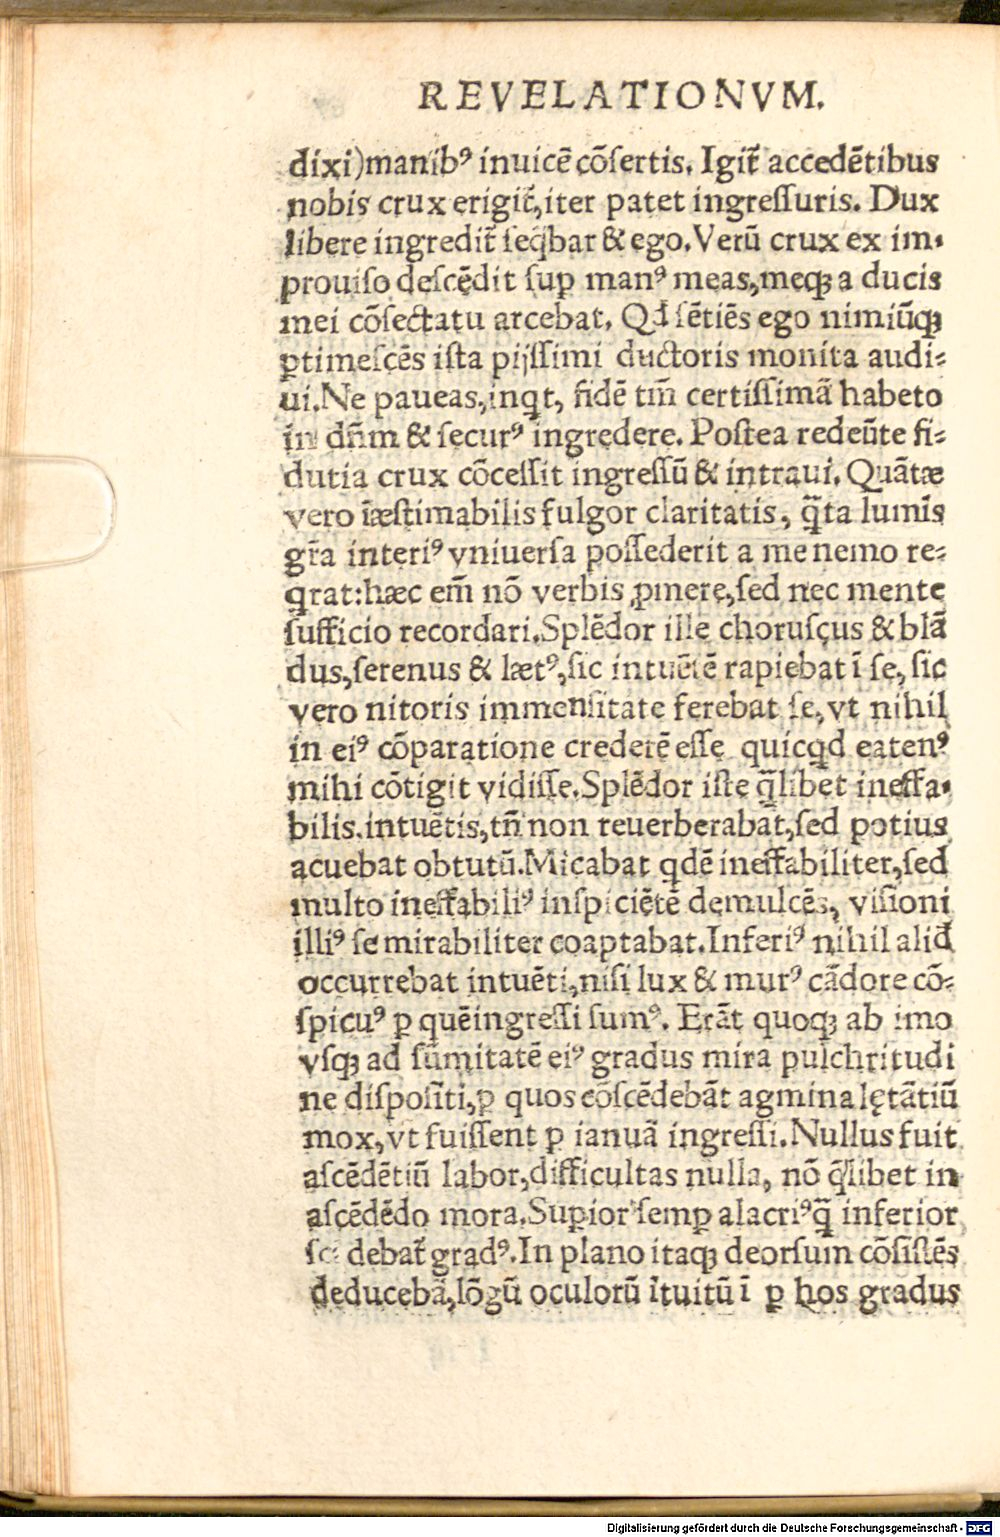 REVELATIONVM.
dixi)manibꝰ inuicē cōſertis. Igit̃ accedētibus
nobis crux erigit̃,iter patet ingreſſuris. Dux
libere ingredit̃ ſeq̃bar & ego.Verũ crux ex im-
prouiſo deſcēdit ſuꝑ manꝰ meas,meqꝫ a ducis
mei cōſectatu arcebat. Qđ ſētiēs ego nimiũqꝫ
ꝑtimeſcēs iſta pijſſimi ductoris monita audi-
ui.Ne paueas,inqt, fidē tm̃ certiſſimã habeto
in dñm & ſecurꝰ ingredere. Poſtea redeũte fi-
dutia crux cōceſſit ingreſſũ & intraui. Quãtæ
vero īæſtimabilis fulgor claritatis, q̃ta lumĩs
gr̃a interiꝰ vniuerſa poſſederit a me nemo re-
qrat:hæc em̃ nō verbis ꝓmere,ſed nec mente
ſufficio recordari.Splēdor ille choruſcus & blã
dus,ſerenus & lætꝰ,ſic intuētē rapiebat ī ſe, ſic
vero nitoris immenſitate ferebat ſe, vt nihil
in eiꝰ cōparatione crederē eſſe quicqd eatenꝰ
mihi cōtigit vidiſſe.Splēdor iſte q̃libet ineffa-
bilis.intuētis,tñ non reuerberabat,ſed potius
acuebat obtutũ.Micabat qdē ineffabiliter,ſed
multo ineffabiliꝰ inſpiciētē demulcēs, viſioni
illiꝰ ſe mirabiliter coaptabat.Inferiꝰ nihil aliđ
occurrebat intuēti,niſi lux & murꝰ cãdore cō-
ſpicuꝰ ꝑ quē ingreſſi ſumꝰ. Erãt quoqꝫ ab imo
vſqꝫ ad ſũmitatē eiꝰ gradus mira pulchritudi
ne diſpoſiti,ꝑ quos cōſcēdebãt agmina lętãtiũ
mox,vt fuiſſent ꝑ ianuã ingreſſi.Nullus fuit
aſcēdētiũ labor,difficultas nulla, nō q̃libet in
aſcēdēdo mora.Suꝑior ſemꝑ alacriꝰ q̃ inferior
debat̃ gradꝰ.In plano itaqꝫ deorſum cōſiſtēs
deducebã,lōgũ oculorũ ītuitũ ī ꝑ hos gradus
Digitalisierung gefördert durch die Deutsche Forschungsgemeinschaft - DFG